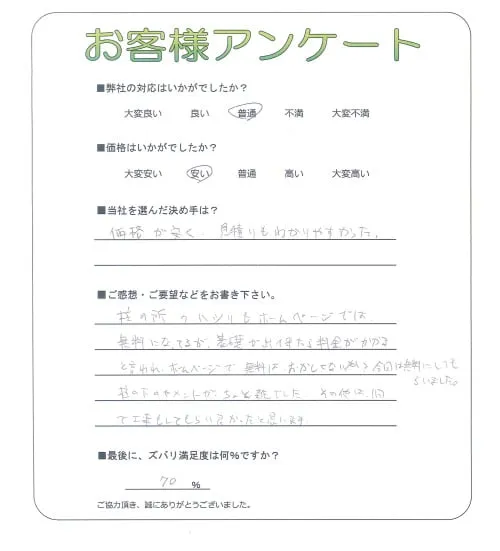 お客様アンケート
■弊社の対応はいかがでしたか?
大変良い 良い 普通 不満 大変不満
■価格はいかがでしたか?
大変安い 安い 普通 高い 大変高い
■当社を選んだ決め手は?
価格が安く、見積りもわかりやすかった。
■ご感想・ご要望などをお書き下さい。
柱の所のハシリもホームページでは
無料になってるが、基礎が出てたら料金がかかる
と言われ、ホームページで無料はおかしくない 今回は無料にしても
らいました。
柱の下のセメントが ちょっと雑でした その他は
で工事もしてもらい良かったと思います
■最後に、ズバリ満足度は何%ですか?
70 %
ご協力頂き、誠にありがとうございました。